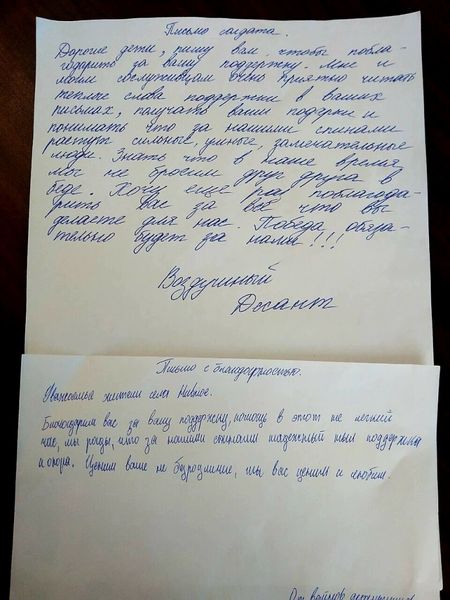 Письмо солдата.
Дорогие дети, пишу вам, чтобы побла-
годарить за вашу поддержку. Мне и
моим сослуживцам очень приятно читать
теплые слова поддержки в ваших
письмах, получать ваши подарки и
понимать что за нашими спинами
растут сильные, умные, замечательные
люди. Знать что в наше время
мы не бросим друг друга в
беде. Хочу еще раз поблагода-
рить вас за всё что вы
делаете для нас. Победа обяза-
тельно будет за нами!!!
Воздушный
Десант
Письмо с благодарностью.
Уважаемые жители села Нивное.
Благодарим вас за вашу поддержку, помощь в этот не легкий
час, мы рады, что за нашими спинами надежный тыл поддержка
и опора. Ценим ваше не безразличие, мы вас ценим и любим.
От воинов десантников